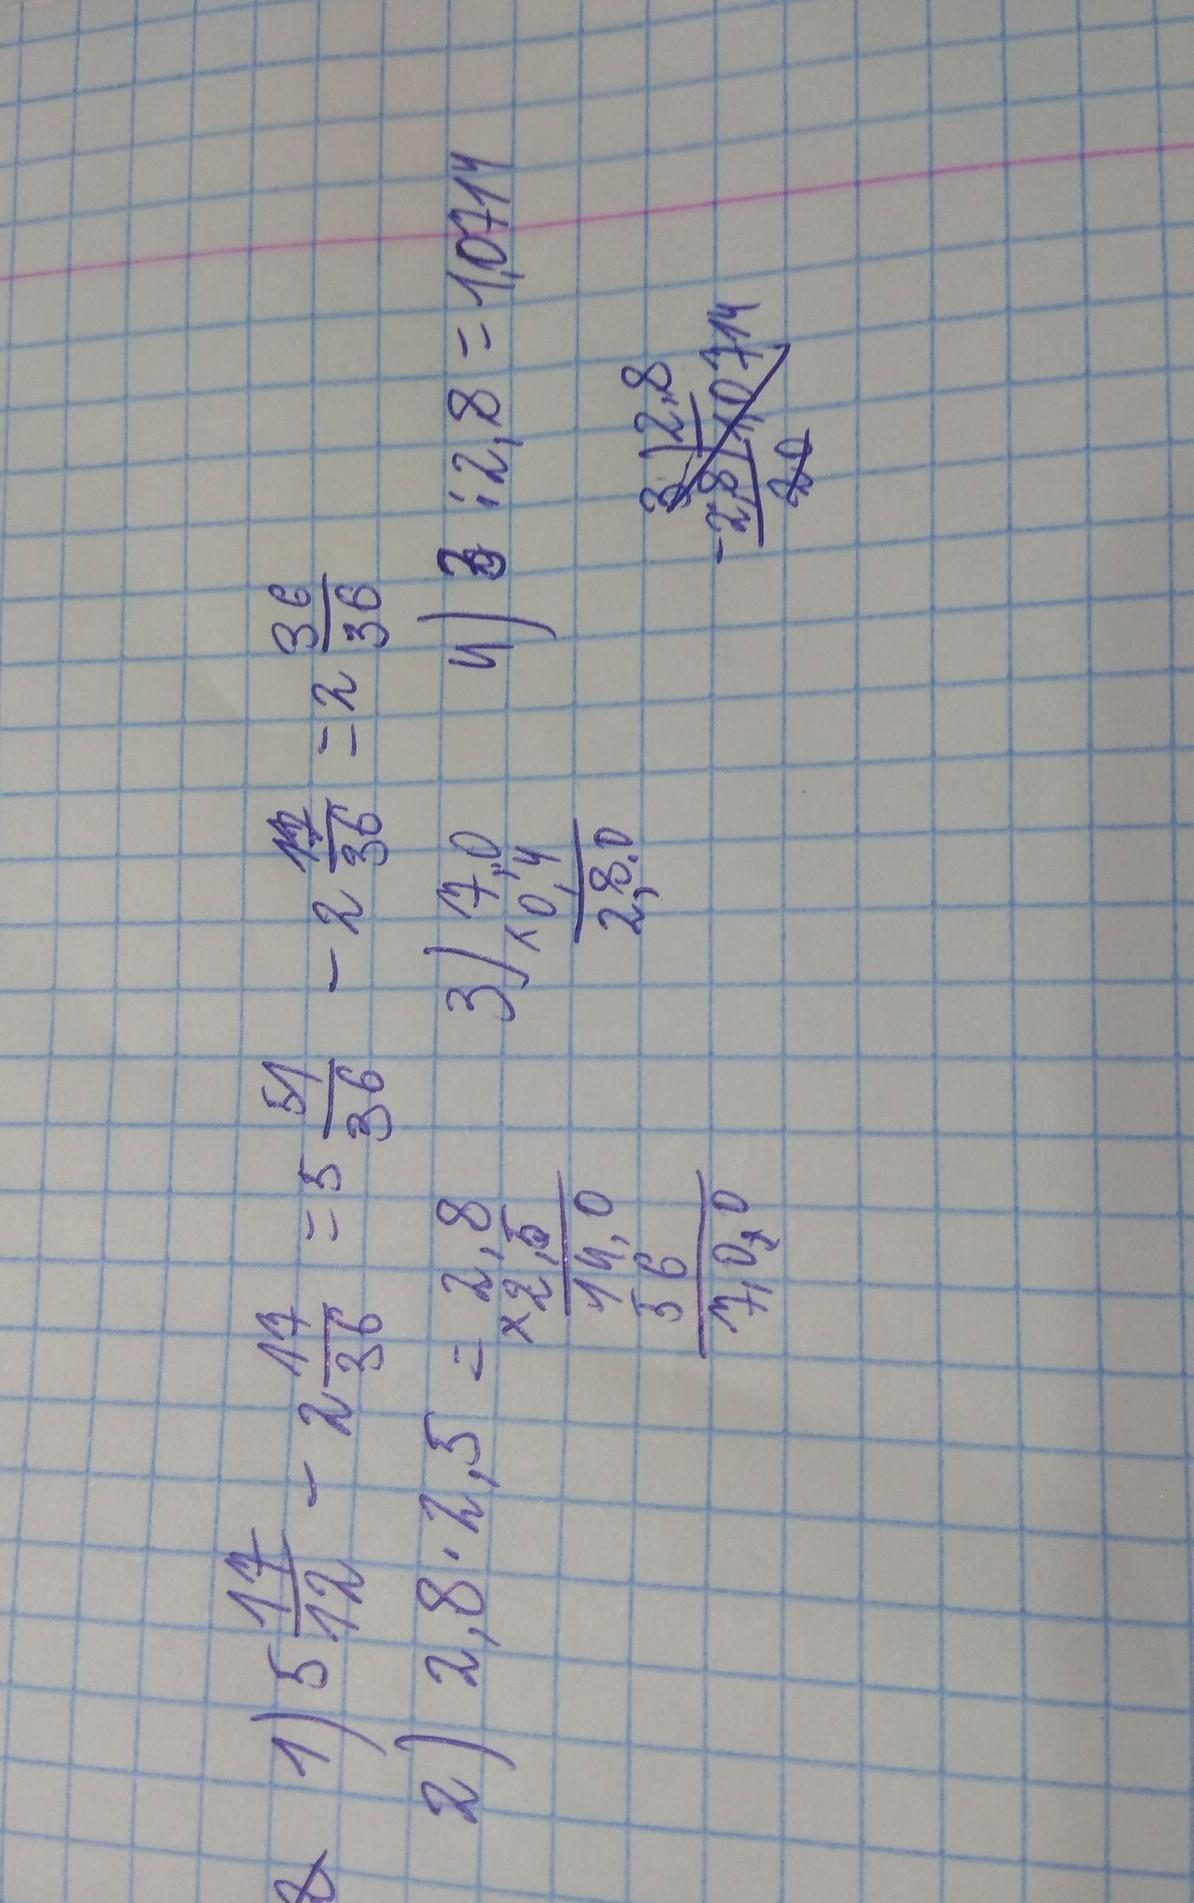 1) 5 17/12 - 2 17/36 = 5 51/36 - 2 17/36 = 2 36/36
2) 2,8 · 2,5 = 2,8
× 2,5
14,0
56
7,0,0
3) 7,0
× 0,4
2,8.0
4) 3 : 2,8 = 1,0714
3 | 2,8
- 2,8 | 1,0714
20